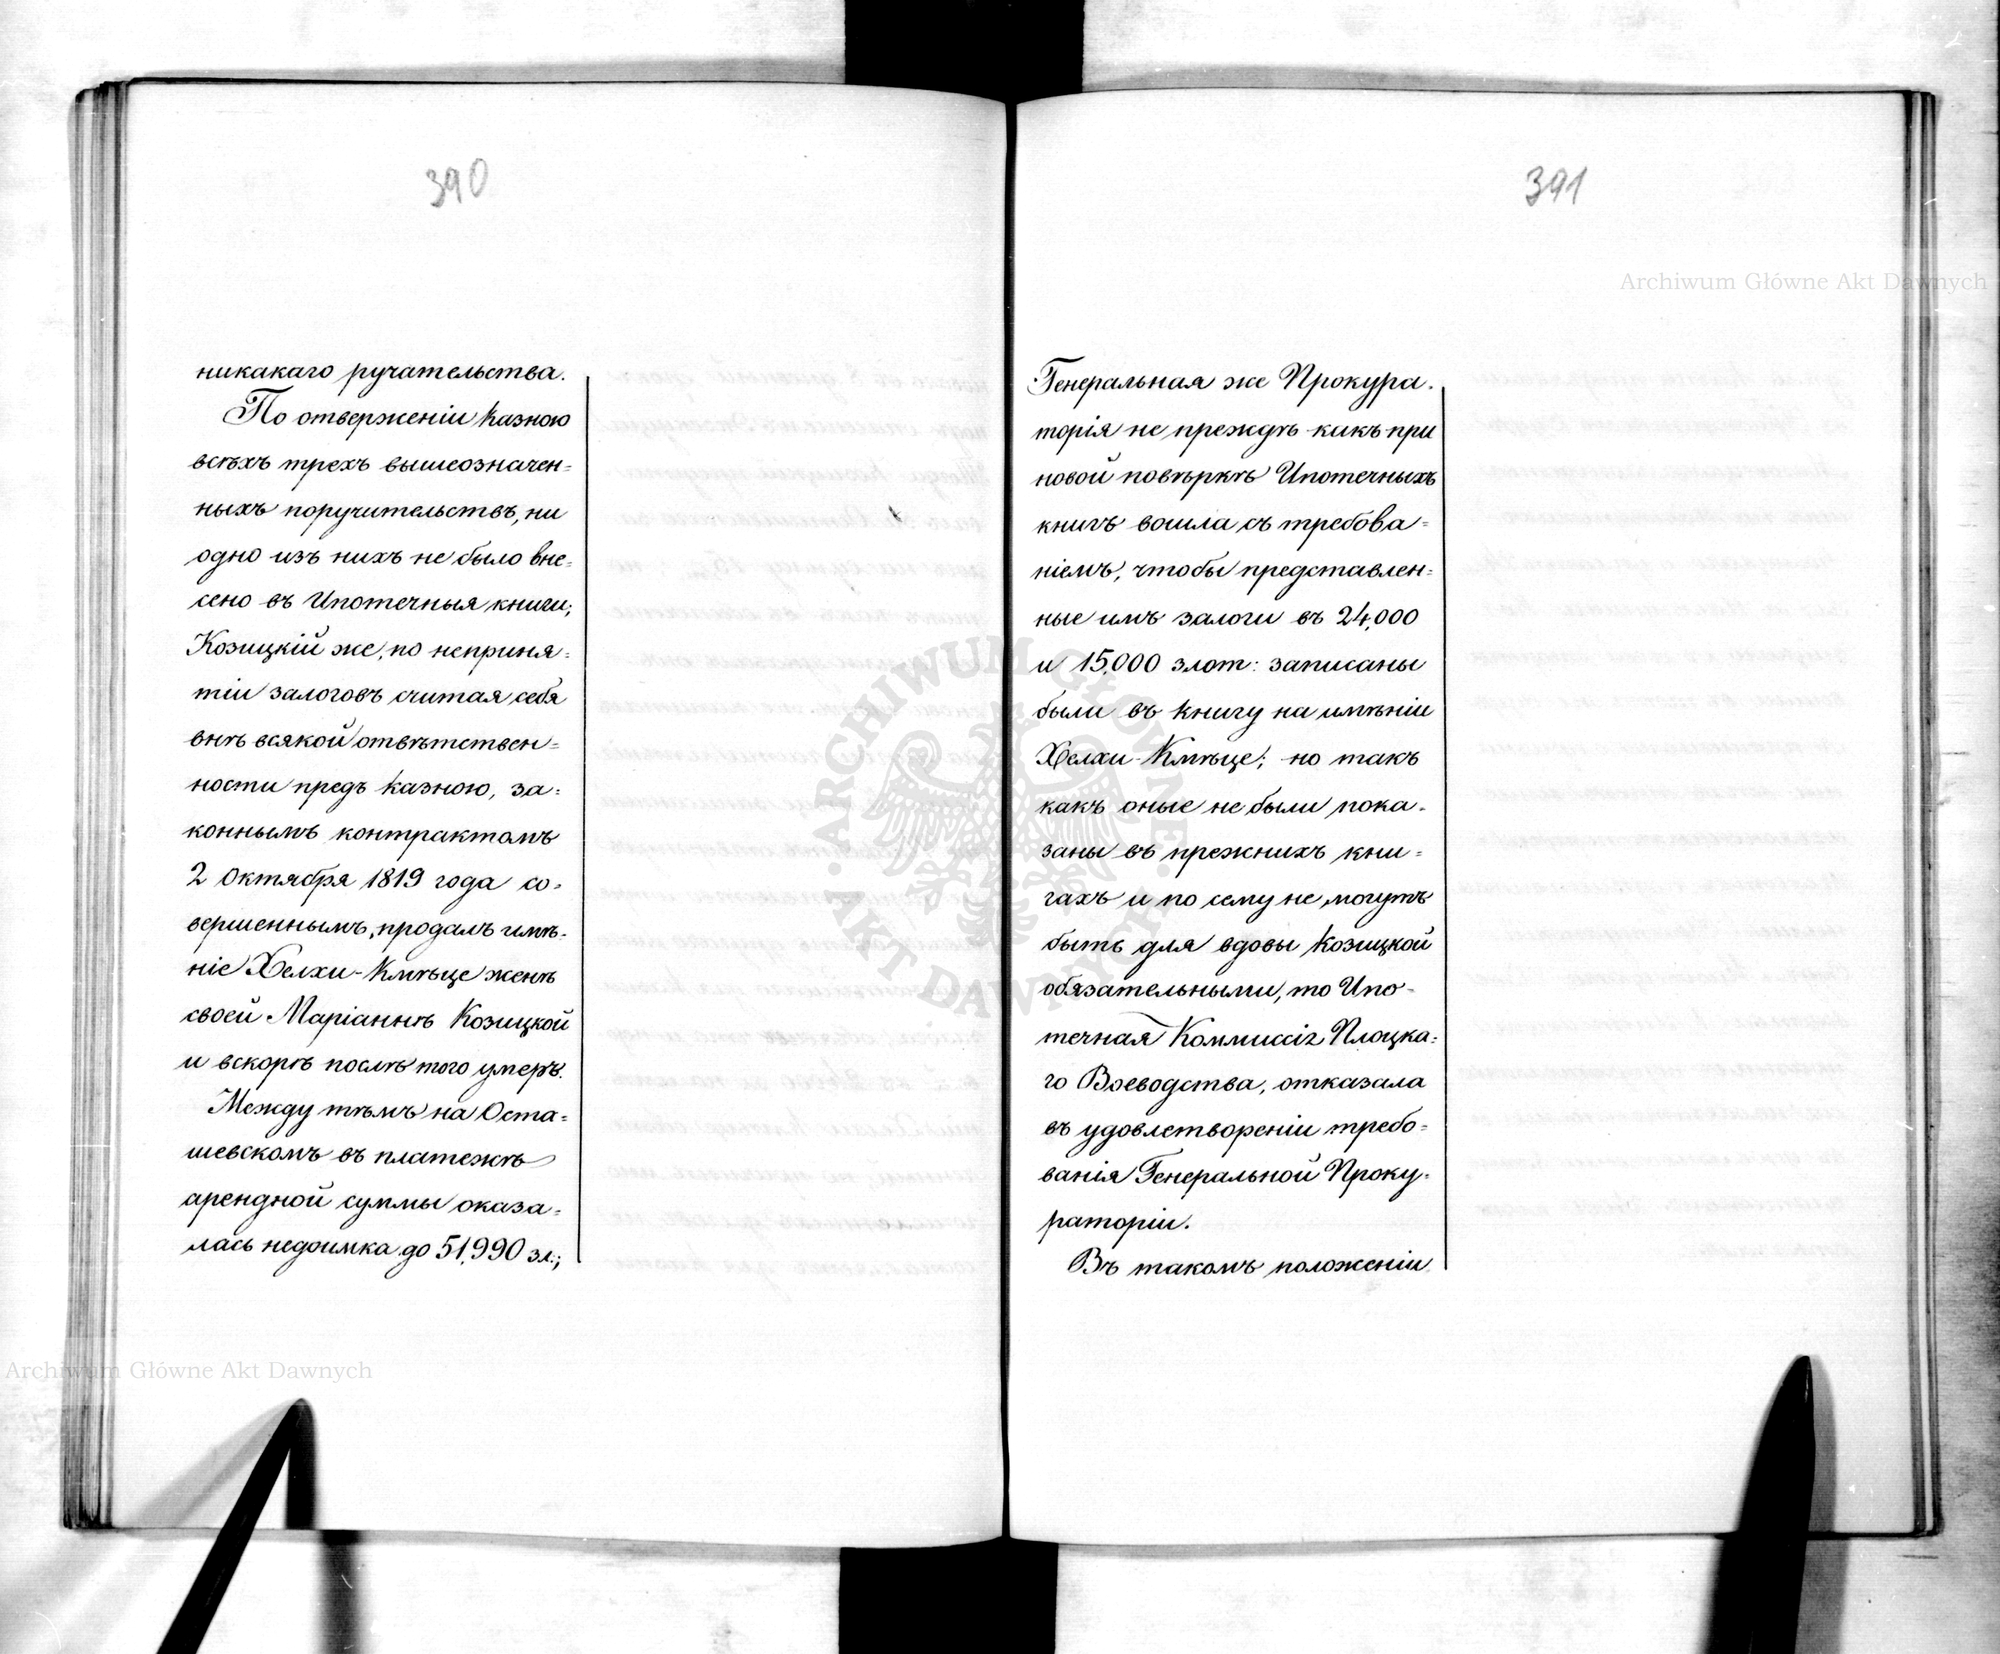 390
никакаго ручательства.
По отверженіи казною
всѣхъ трехъ вышеозначен=
ныхъ поручительствъ, ни
одно изъ нихъ не было вне=
сено въ Ипотечныя книги;
Козицкій же, по неприня=
тіи залоговъ считая себя
внѣ всякой отвѣтствен=
ности предъ казною, за=
коннымъ контрактомъ
2 Октября 1819 года со=
вершеннымъ, продалъ имѣ=
ніе Хелхи-Кмѣце женѣ
своей Маріаннѣ Козицкой
и вскорѣ послѣ того умеръ.
Между тѣмъ на Оста=
шевскомъ въ платежѣ
арендной суммы оказа=
лась недоимка до 51,990 зл.;
391
Генеральная же Прокура=
торія не прежде какъ при
новой повѣркѣ Ипотечныхъ
книгъ вошла съ требова=
ніемъ, чтобы представлен=
ные имъ залоги въ 24,000
и 15,000 злот: записаны
были въ книгу на имѣніи
Хелхи-Кмѣце; но такъ
какъ оные не были пока=
заны въ прежнихъ кни=
гахъ и по сему не могутъ
быть для вдовы Козицкой
обязательными, то Ипо=
течная Коммиссія Плоцка=
го Воеводства, отказала
въ удовлетвореніи требо=
ванія Генеральной Проку=
раторіи.
Въ такомъ положеніи
Archiwum Główne Akt Dawnych
Archiwum Główne Akt Dawnych
ARCHIWUM GŁÓWNE AKT DAWNYCH